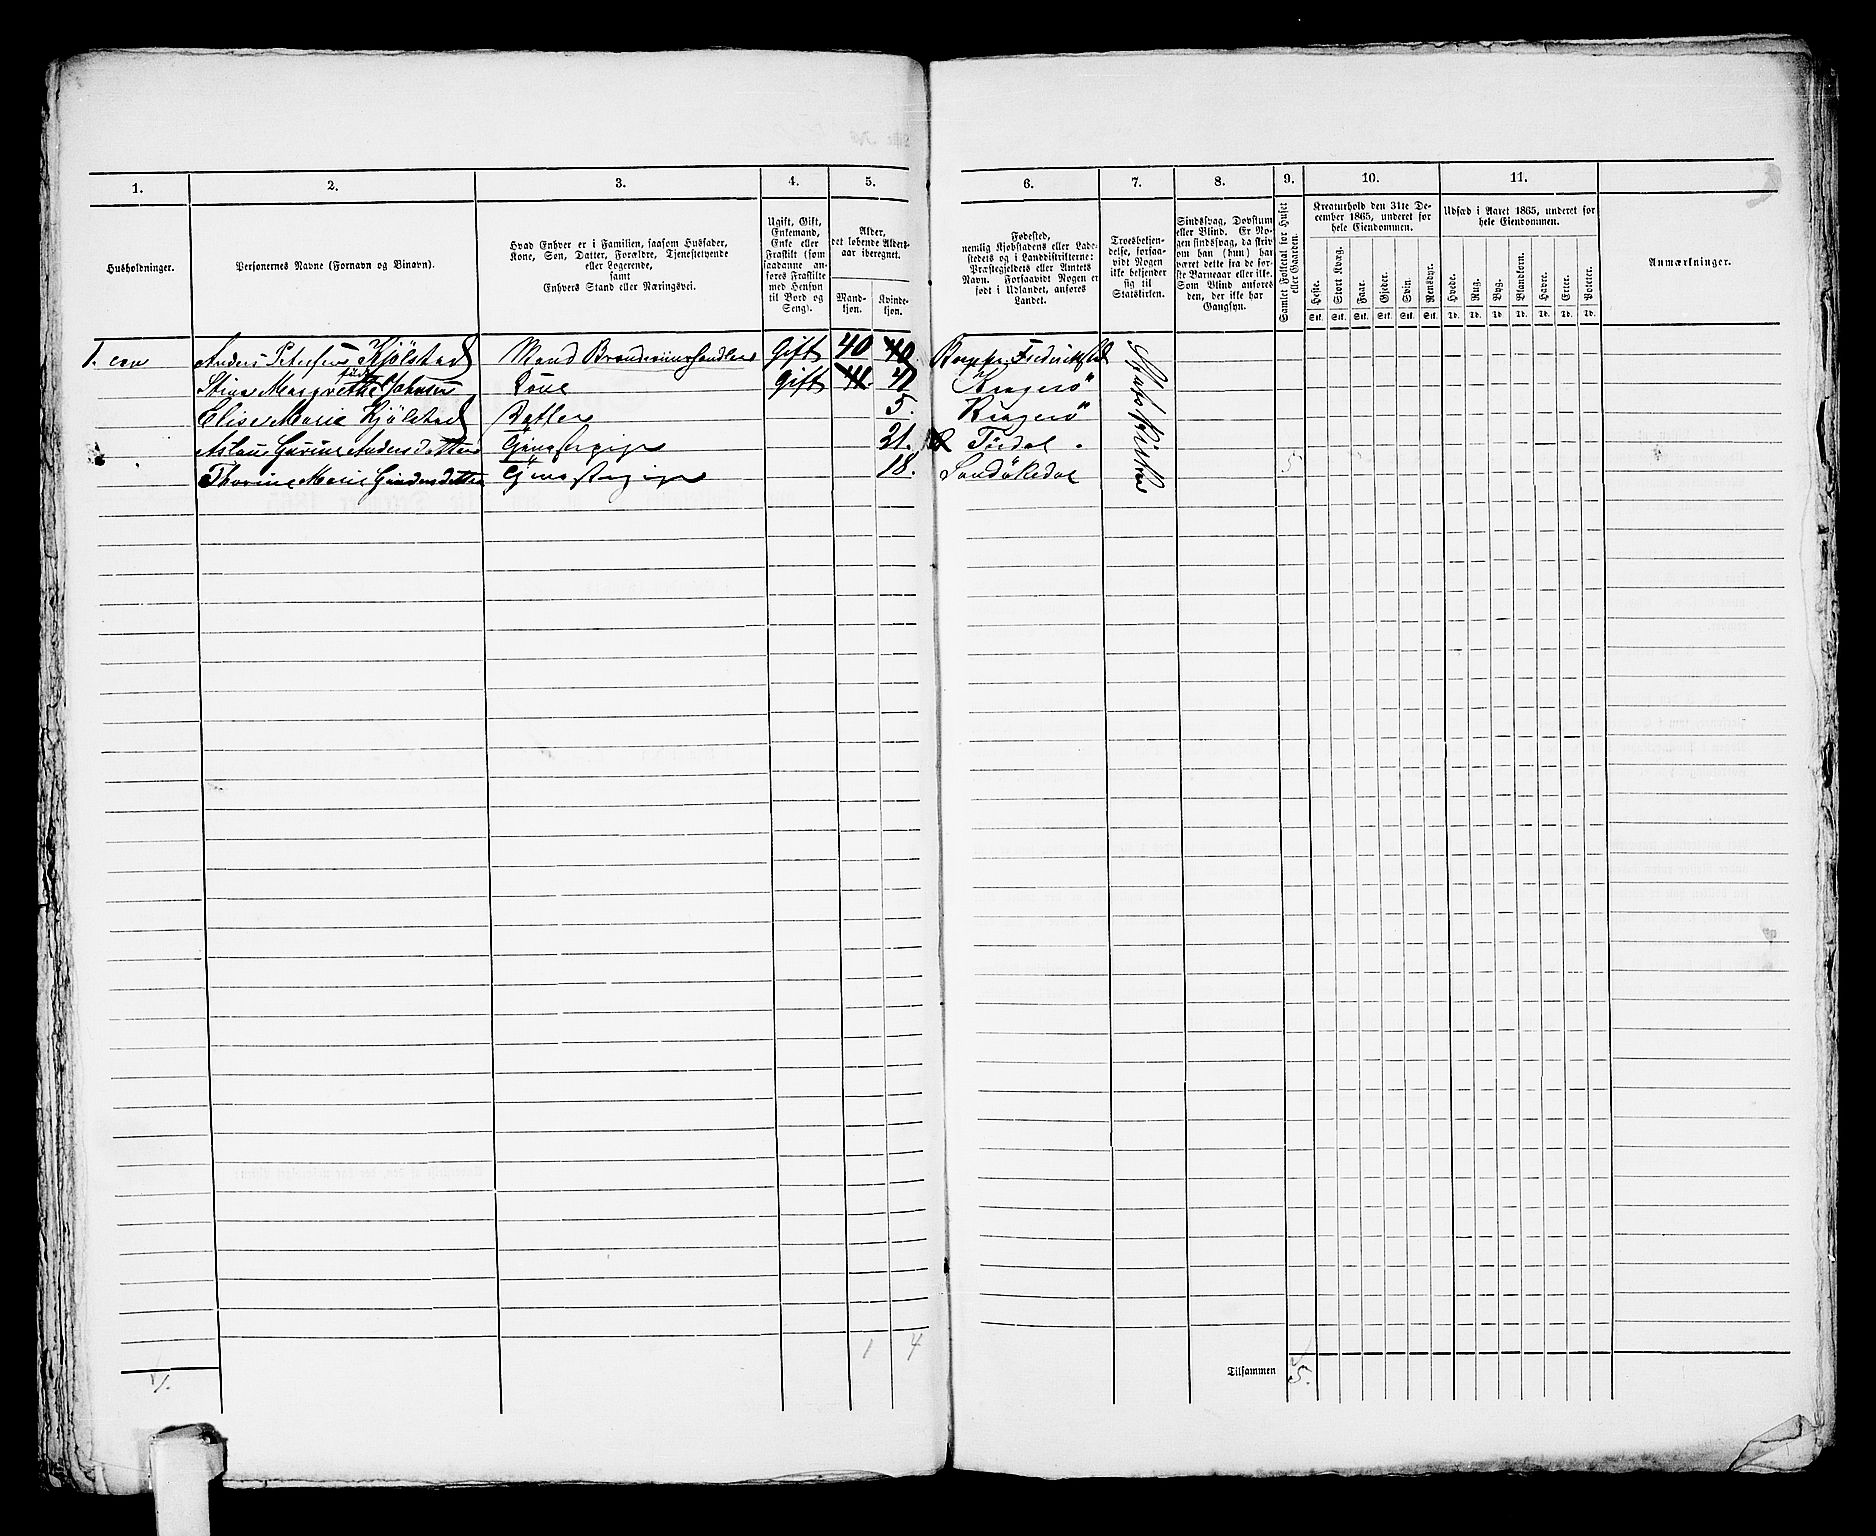 1. 2. 3. 4. 5. 6. 7. 8. 9. 10. 11.
Husholdninger.
Personernes Navne (Fornavn og Binavn).
Hvad Enhver er i Familien, saasom Husfader,
Kone, Søn, Datter, Forældre, Tjenestetyende
eller Logerende,
samt
Enhvers Stand eller Næringsvei.
Ugift, Gift,
Enkemand,
Enke eller
Fraskilt (som
saadanne anføres
Fraskilte
med Hensyn
til Bord og
Seng).
Alder,
det løbende Alders-
aar iberegnet.
Mand-
kjøn.
Kvinde-
kjøn.
Fødested,
nemlig Kjøbstadens eller Lade-
stedets og i Landdistrikterne:
Præstegjeldets eller Amtets
Navn. Forsaavidt Nogen er
født i Udlandet, anføres
Landet.
Troesbekjen-
delse, forsaa-
vidt Nogen
ikke bekjender
sig til
Statskirken.
Sindssvag, Døvstum
eller Blind. Er No-
gen sindssvag, da skriv
om han (hun) har
været dette fra de før-
ste Barneaar eller ikke.
Som Blind anføres
den, der ikke har
Gangsyn.
Samlet Folketal for Huset
eller Gaarden.
Kreaturhold den 31te De-
cember 1865, underet for
hele Eiendommen.
Heste. Stort Kvæg. Faar. Gjeder. Svin. Rensdyr.
Stk. Stk. Stk. Stk. Stk. Stk.
Udsæd i Aaret 1865, underet for
hele Eiendommen.
Hvede. Rug. Byg. Blandkorn. Havre. Erter. Poteter.
Td. Td. Td. Td. Td. Td. Td.
Anmærkninger.
1. een Anders Petersen Kjölstad Mand Brændeviinshandler Gift 40 40 Frederikstad Statskirken
Stine Margrethe født Johnsen Kone Gift 41. 41 Kragerö
Elise Marie Kjölstad Datter 5. Kragerö
Aslau Gurine Andersdatter 21. Tördal.
Thorine Marie Gundersdatter 18. Sandökedal 5
1 4
1/.
Tilsammen 5.